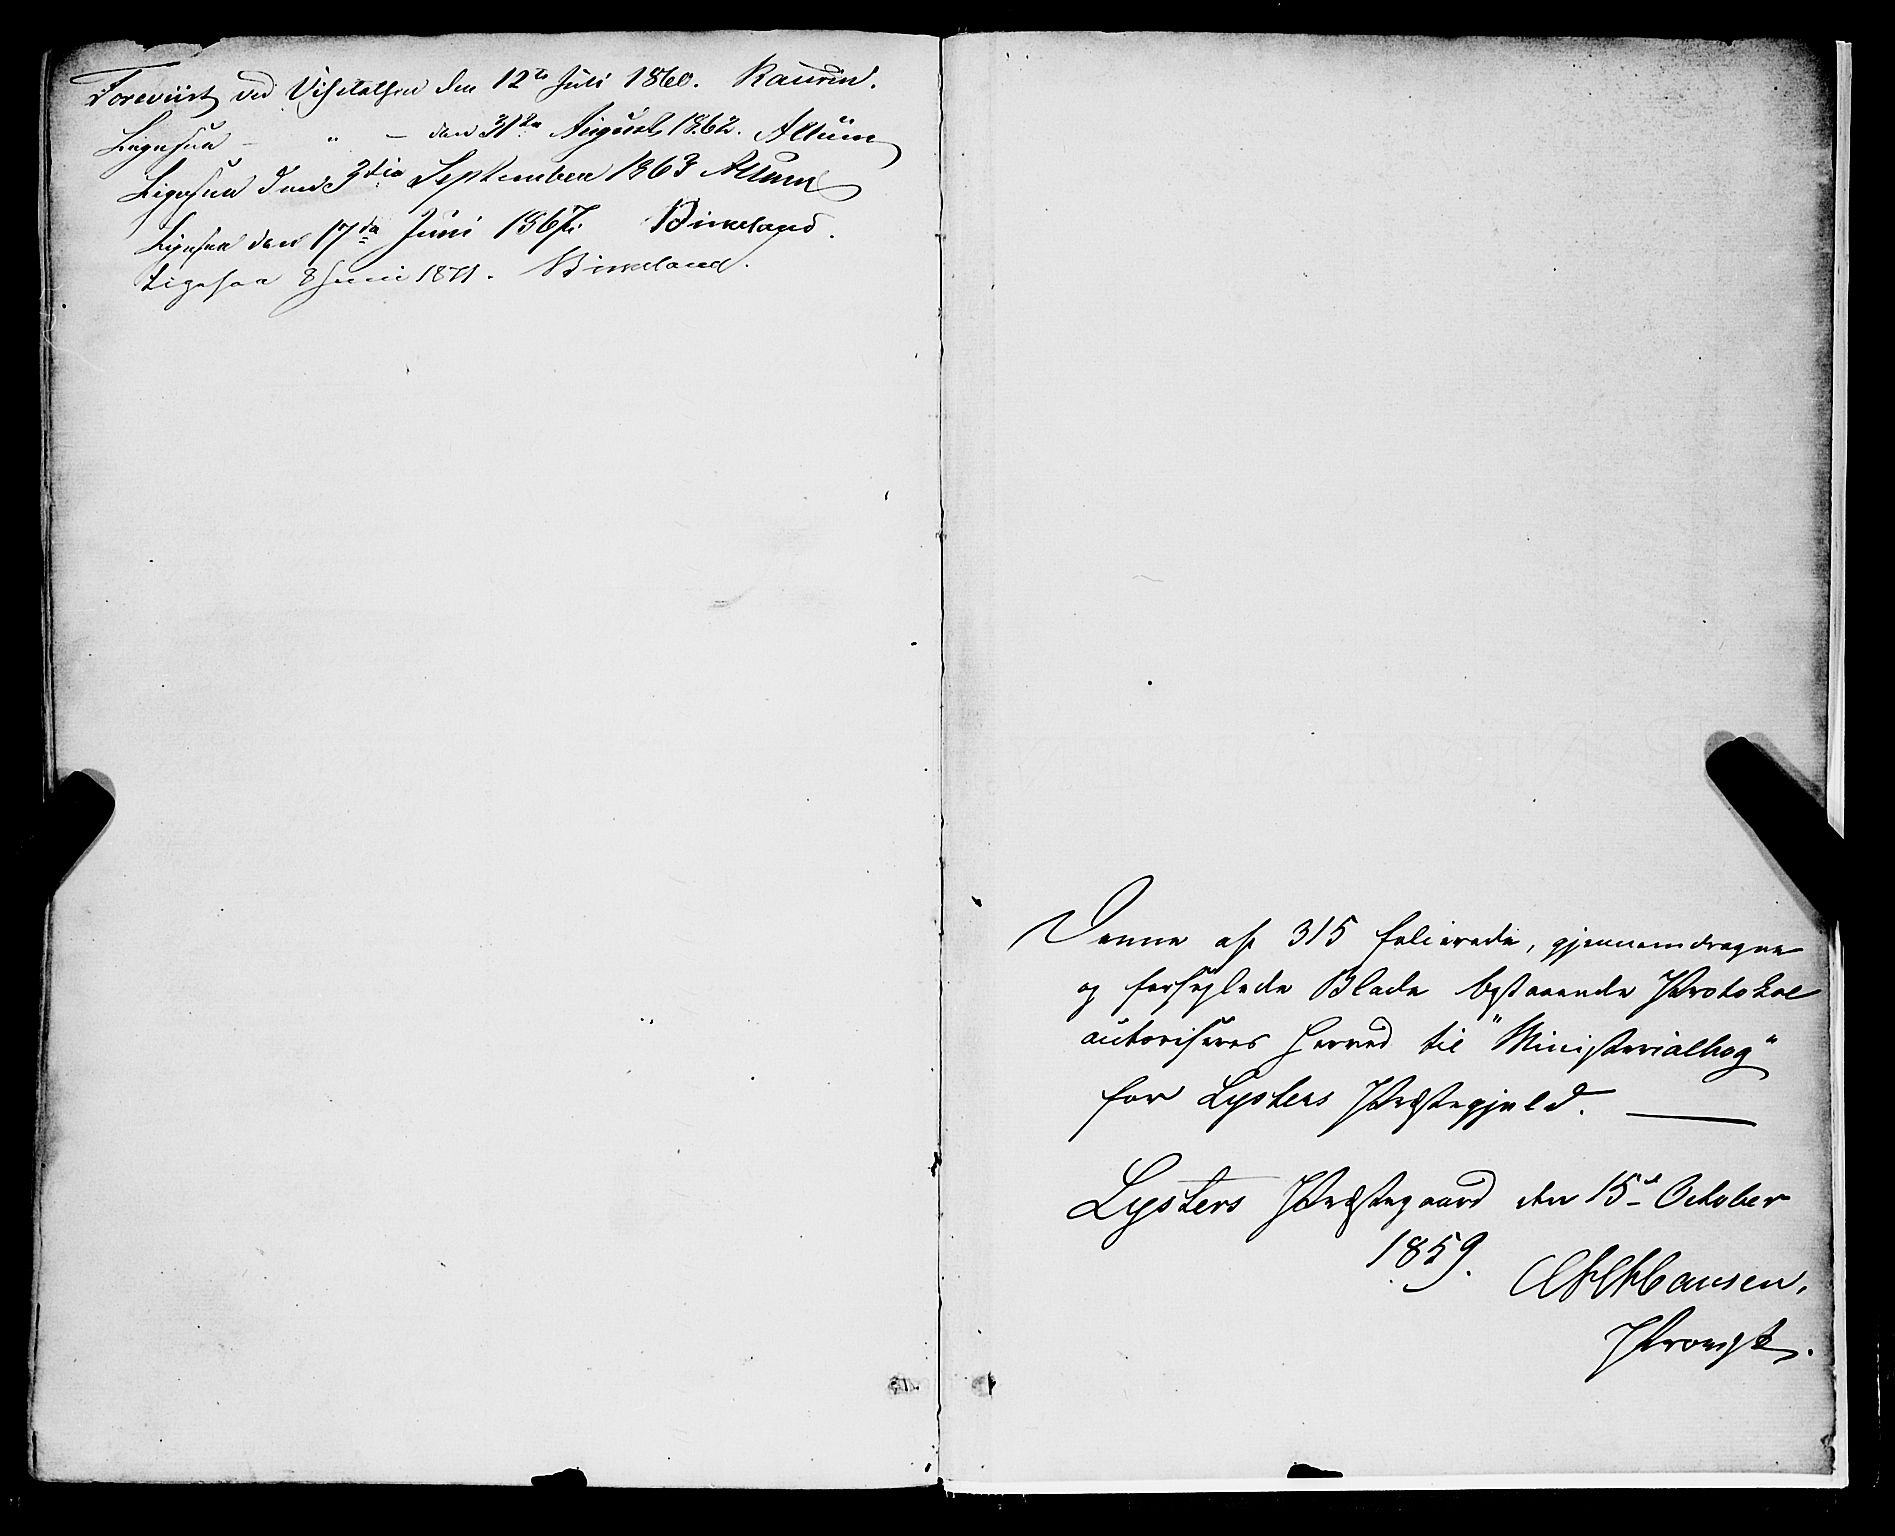 Foreviist ved Visitatsen den 12te Juli 1860. Kaurin.
Ligesaa - " - den 31te August 1862. Allum
Ligesaa den 3die September 1863 Allum
Ligesaa den 17de Juni 1867. Birkeland.
Ligesaa 8 Juni 1871. Birkeland.
Denne af 315 folierede, gjennemdragne
og forseglede Blade bestaaende Protokol
autoriseres herved til "Ministerialbog"
for Lysters Præstegjeld. —
Lysters Præstegaard den 15de October
1859.
Hansen.
Provst.